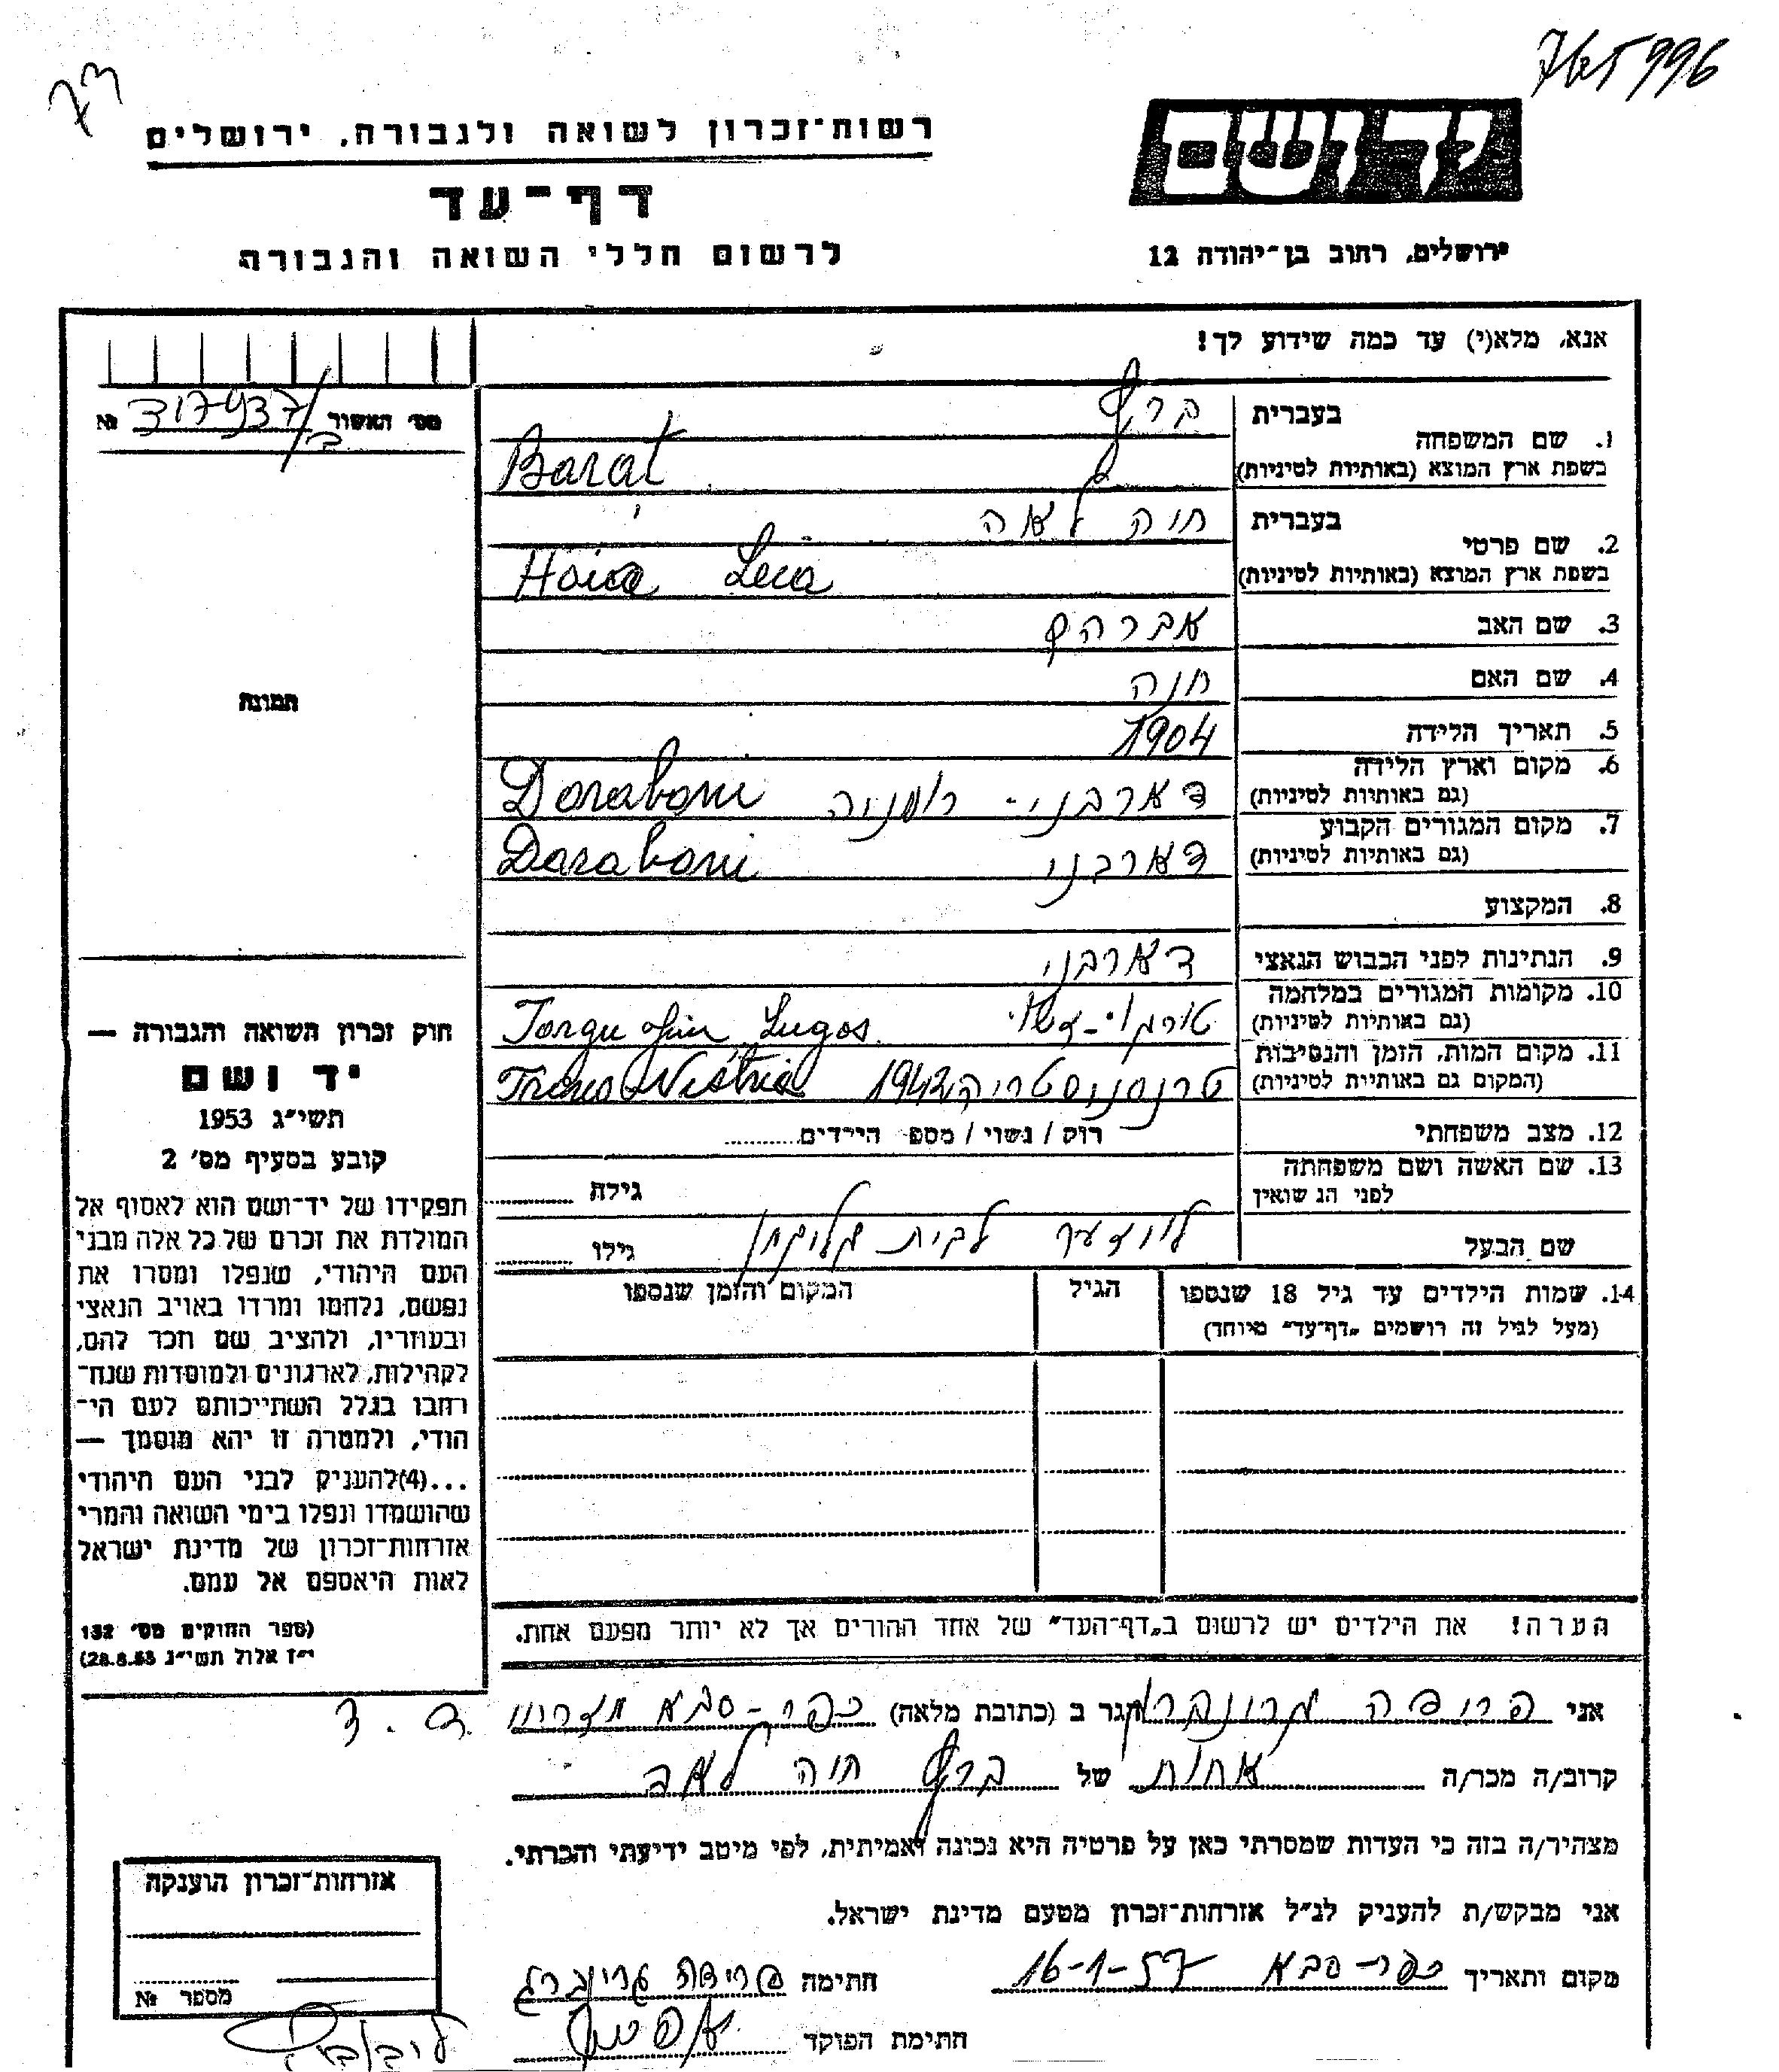 73
765996
רשות־זכרון לשואה ולגבורה, ירושלים
יד ושם
דף־עד
לרשום חללי השואה והגבורה
ירושלים, רחוב בן־יהודה 12
אנא, מלא(י) עד כמה שידוע לך!
מס׳ האשור 317937/ב №
1. שם המשפחה בעברית
בשפת ארץ המוצא (באותיות לטיניות) Barat
2. שם פרטי בעברית חוה לאה
בשפת ארץ המוצא (באותיות לטיניות) Haia Leia
3. שם האב אברהם
4. שם האם חנה
5. תאריך הלידה 1904
6. מקום וארץ הלידה דארבני - רומניה Daraboni
(גם באותיות לטיניות)
7. מקום המגורים הקבוע דארבני Daraboni
(גם באותיות לטיניות)
8. המקצוע
9. הנתינות לפני הכבוש הנאצי דארבני
10. מקומות המגורים במלחמה Torgu Jiu Lugos
(גם באותיות לטיניות)
11. מקום המות, הזמן והנסיבות טרנסניסטריה 1942 Trans Nistria
(המקום גם באותיות לטיניות)
12. מצב משפחתי רווק / נשוי / מספר הילדים
13. שם האשה ושם משפחתה
לפני הנשואין גילה
שם הבעל לבית גילו
14. שמות הילדים עד גיל 18 שנספו הגיל המקום והזמן שנספו
(מעל לגיל זה רושמים „דף־עד״ מיוחד)
הערה! את הילדים יש לרשום ב„דף־העד״ של אחד ההורים אך לא יותר מפעם אחת.
תמונה
חוק זכרון השואה והגבורה —
יד ושם
תשי״ג 1953
קובע בסעיף מס׳ 2
תפקידו של יד־ושם הוא לאסוף אל
המולדת את זכרם של כל אלה מבני
העם היהודי, שנפלו ומסרו את
נפשם, נלחמו ומרדו באויב הנאצי
ובעוזריו, ולהציב שם וזכר להם,
לקהילות, לארגונים ולמוסדות שנח־
רבו בגלל השתייכותם לעם הי־
הודי, ולמטרה זו יהא מוסמך —
...(4) להעניק לבני העם היהודי
שהושמדו ונפלו בימי השואה והמרי
אזרחות־זכרון של מדינת ישראל
לאות היאספם אל עמם.
(ספר החוקים מס׳ 132
י״ז אלול תשי״ג 28.8.53)
אני פרידה גרונברג הגר ב (כתובת מלאה) כפר-סבא
קרוב/ה מכר/ה אחות של חוה לאה
מצהיר/ה בזה כי העדות שמסרתי כאן על פרטיה היא נכונה ואמיתית, לפי מיטב ידיעתי והכרתי.
אני מבקש/ת להעניק לנ״ל אזרחות־זכרון מטעם מדינת ישראל.
מקום ותאריך כפר-סבא 16-1-57 חתימה פרידה גרונברג
חתימת הפוקד
אזרחות־זכרון הוענקה
מספר №